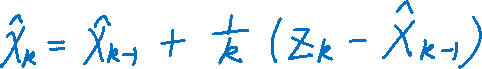 x̂ₖ = x̂ₖ₋₁ + 1/k (zₖ - x̂ₖ₋₁)